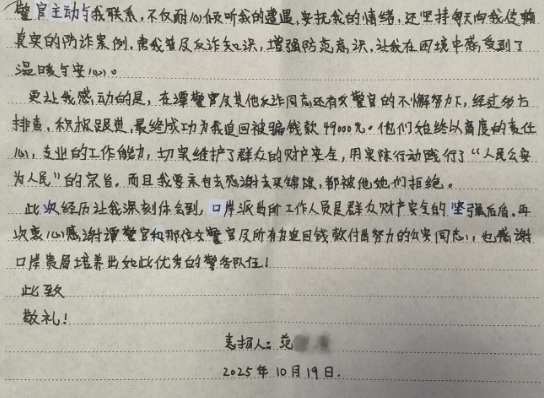 警官主动与我联系,不仅耐心倾听我的遭遇,安抚我的情绪,还坚持每天向我传输
真实的防诈案例,帮我普及反诈知识,增强防范意识,让我在困境中感受到了
温暖与安心。
更让我感动的是,在谭警官及其他反诈同志还有女警官的不懈努力下,经过多方
排查、积极跟进,最终成功为我追回被骗钱款49000元。他们始终以高度的责任
心,专业的工作能力,切实维护了群众的财产安全,用实际行动践行了“人民公安
为人民”的宗旨。而且我要亲自去感谢去买锦旗,都被他他们拒绝。
此次经历让我深刻体会到,口岸派出所工作人员是群众财产安全的坚强后盾。再
次衷心感谢谭警官和那位女警官及所有为追回钱款付出努力的公安同志,也感谢
口岸贵局培养出如此优秀的警务队伍!
此致
敬礼!
表扬人:范
2025年10月19日.